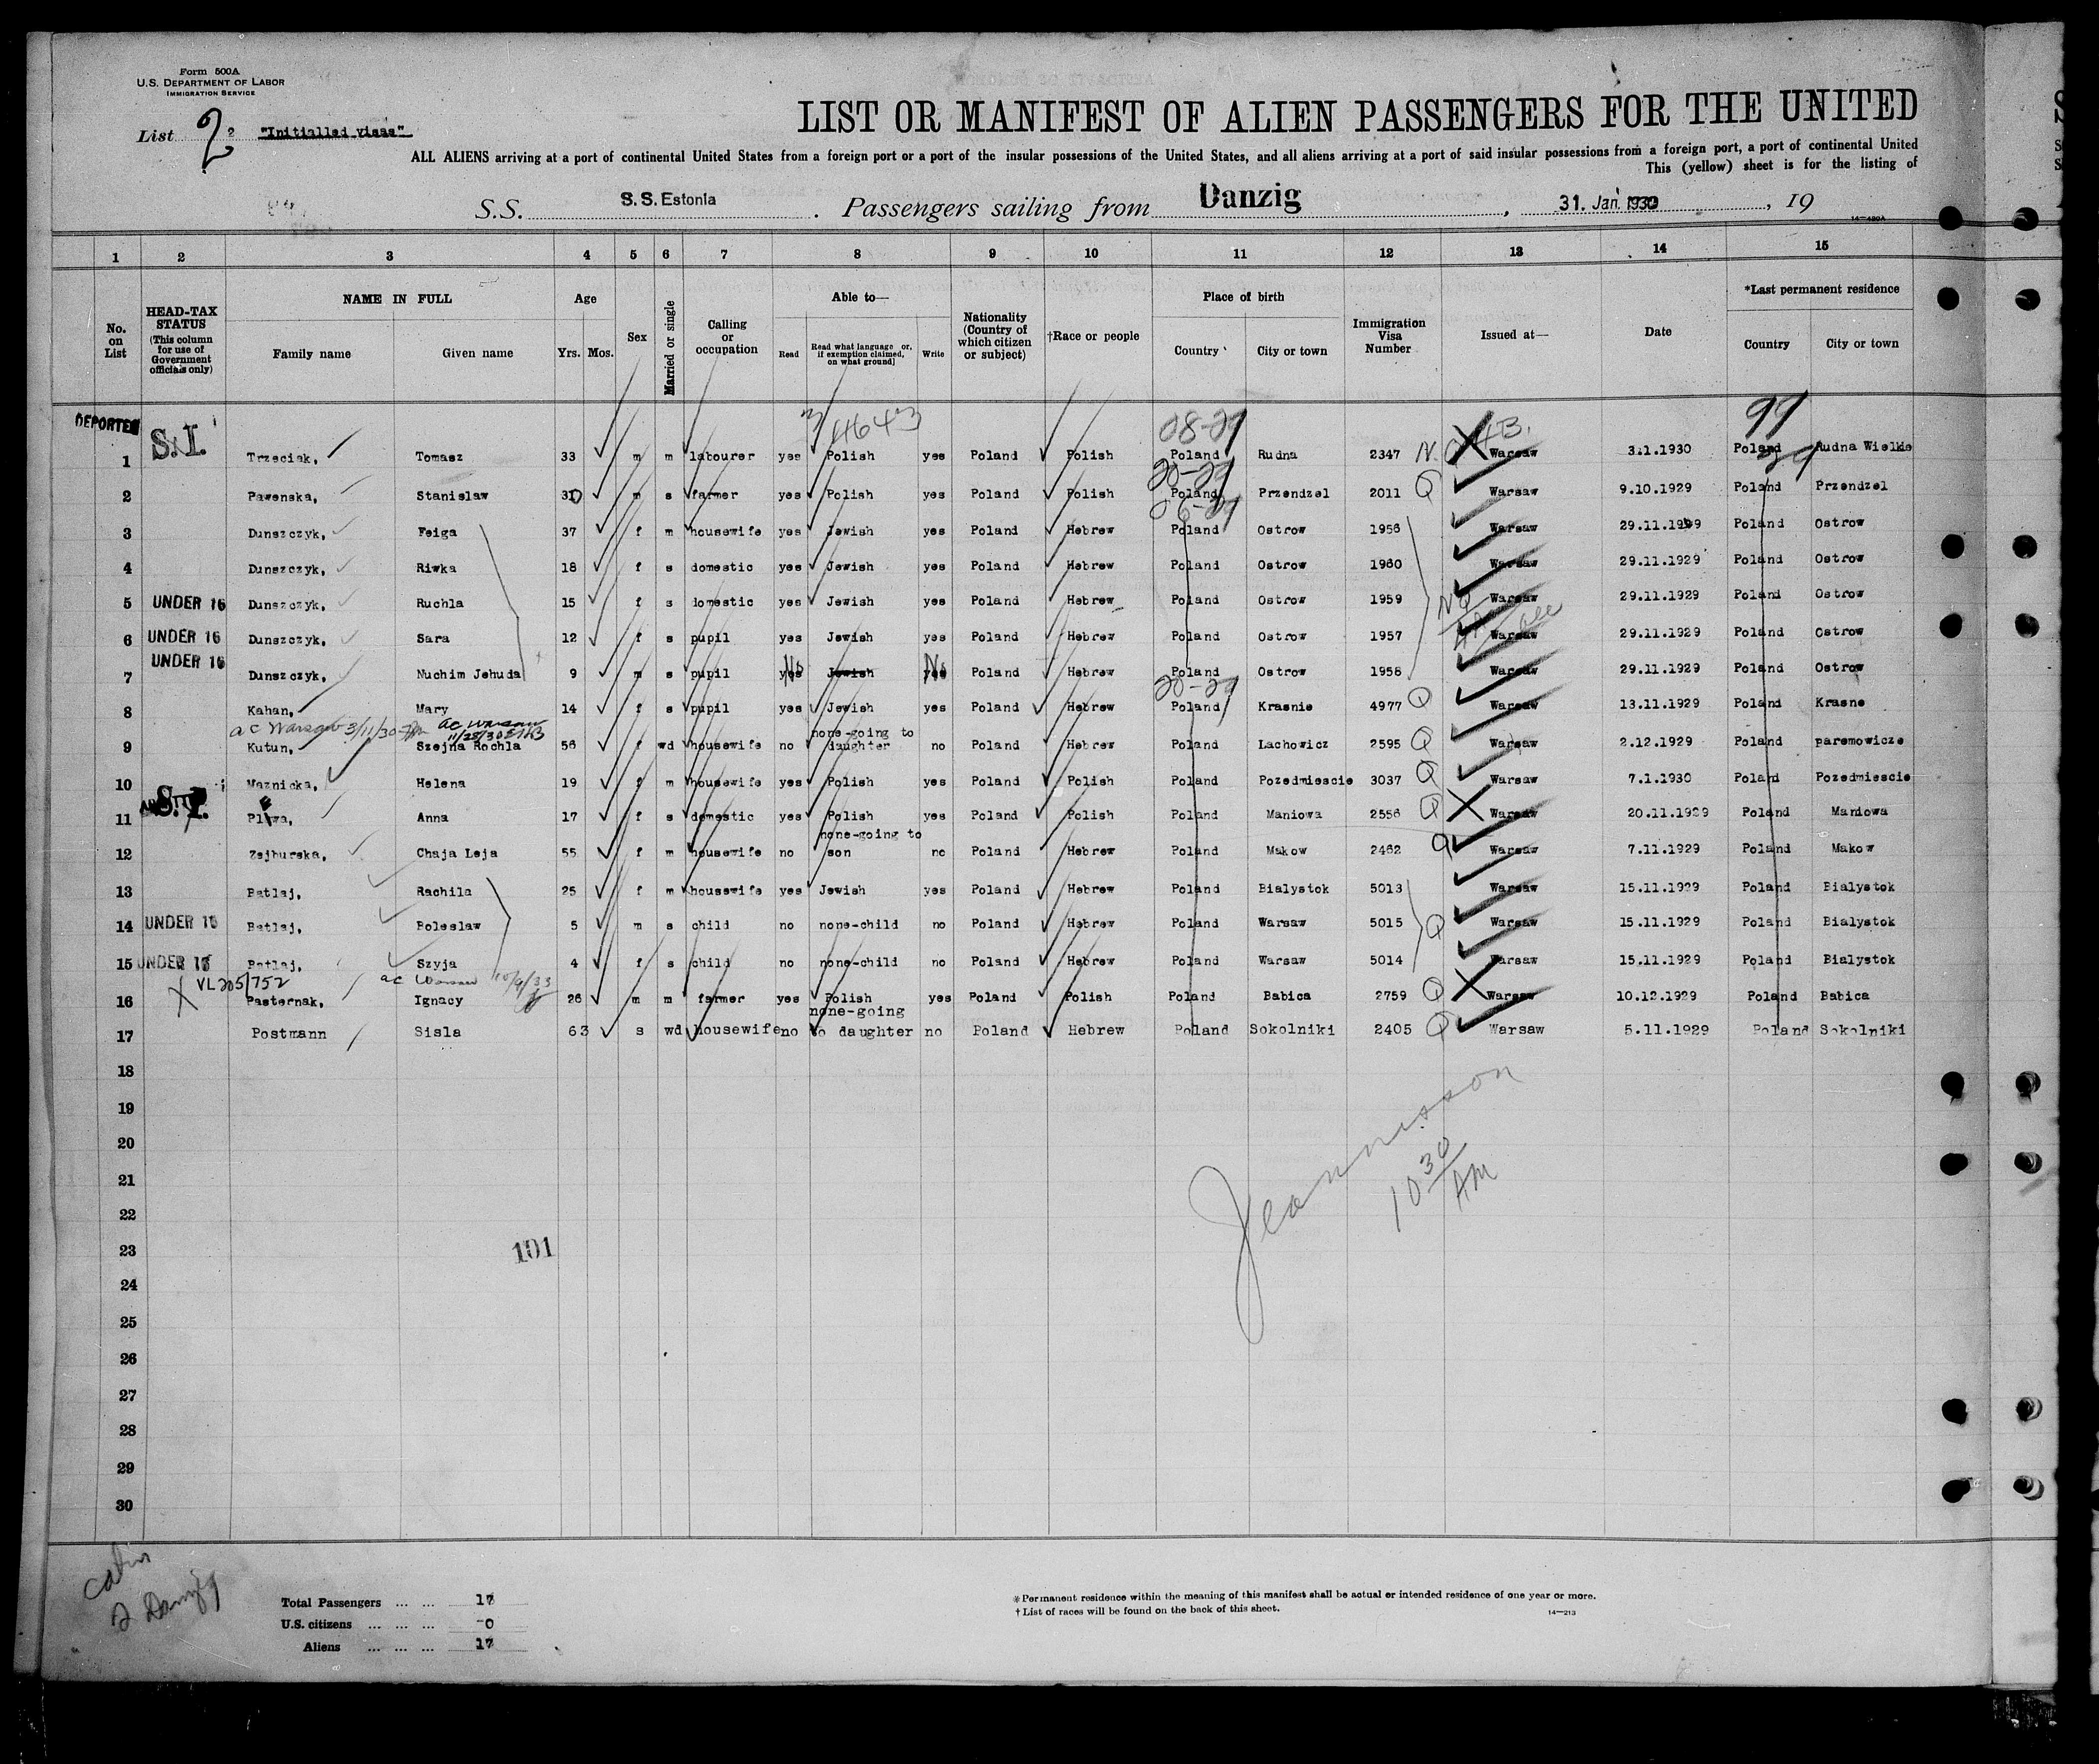 Form 500A
U.S. DEPARTMENT OF LABOR
IMMIGRATION SERVICE
List 2 2 "Initialled visas"
LIST OR MANIFEST OF ALIEN PASSENGERS FOR THE UNITED
ALL ALIENS arriving at a port of continental United States from a foreign port or a port of the insular possessions of the United States, and all aliens arriving at a port of said insular possessions from a foreign port, a port of continental United
This (yellow) sheet is for the listing of
S.S. S.S. Estonia . Passengers sailing from Danzig , 31. Jan. 1930 , 19
14-480A
1 2 3 4 5 6 7 8 9 10 11 12 13 14 15
No. on List
HEAD-TAX STATUS (This column for use of Government officials only)
NAME IN FULL
Family name Given name
Age
Yrs. Mos.
Sex
Married or single
Calling or occupation
Able to—
Read
Read what language or, if exemption claimed, on what ground]
Write
Nationality (Country of which citizen or subject)
†Race or people
Place of birth
Country City or town
Immigration Visa Number
Issued at—
Date
*Last permanent residence
Country City or town
DEPORTED
S.I.
3/4643 28-29 99
1 Trzeciak, Tomasz 33 m m labourer yes Polish yes Poland Polish Poland Rudna 2347 Warsaw 3.1.1930 Poland Rudna Wielkie
20-29
2 Pawenska, Stanislaw 30 m s farmer yes Polish yes Poland Polish Poland Przendzel 2011 Q Warsaw 9.10.1929 Poland Przendzel
3 Dunszczyk, Feiga 37 f m housewife yes Jewish yes Poland Hebrew Poland Ostrow 1956 Warsaw 29.11.1929 Poland Ostrow
4 Dunszczyk, Riwka 18 f s domestic yes Jewish yes Poland Hebrew Poland Ostrow 1960 Warsaw 29.11.1929 Poland Ostrow
5 UNDER 16 Dunszczyk, Ruchla 15 f s domestic yes Jewish yes Poland Hebrew Poland Ostrow 1959 Warsaw 29.11.1929 Poland Ostrow
6 UNDER 16 Dunszczyk, Sara 12 f s pupil yes Jewish yes Poland Hebrew Poland Ostrow 1957 Warsaw 29.11.1929 Poland Ostrow
7 UNDER 16 Dunszczyk, Nuchim Jehuda 9 m s pupil yes No Jewish yes No Poland Hebrew Poland Ostrow 1958 Warsaw 29.11.1929 Poland Ostrow
20-29
8 Kahan, Mary 14 f s pupil yes Jewish yes Poland Hebrew Poland Krasnie 4977 Q Warsaw 13.11.1929 Poland Krasne
ac Warsaw 3/11/30 ac Warsaw 11/28/30
9 Kutun, Szejna Rochla 56 f wd housewife no none-going to daughter no Poland Hebrew Poland Lachowicz 2595 Q Warsaw 2.12.1929 Poland paremowicze
10 Maznicka, Helena 19 f m housewife yes Polish yes Poland Polish Poland Pozedmiescie 3037 Q Warsaw 7.1.1930 Poland Pozedmiescie
S.I.
11 Anna 17 f s domestic yes Polish yes Poland Polish Poland Maniowa 2556 Q Warsaw 20.11.1929 Poland Maniowa
12 Zejburska, Chaja Leja 55 f m housewife no none-going to son no Poland Hebrew Poland Makow 2462 Q Warsaw 7.11.1929 Poland Makow
13 Batlaj, Rachila 25 f m housewife yes Jewish yes Poland Hebrew Poland Bialystok 5013 Warsaw 15.11.1929 Poland Bialystok
14 UNDER 16 Batlaj, Boleslaw 5 m s child no none-child no Poland Hebrew Poland Warsaw 5015 Q Warsaw 15.11.1929 Poland Bialystok
15 UNDER 16 Batlaj, Szyja 4 f s child no none-child no Poland Hebrew Poland Warsaw 5014 Warsaw 15.11.1929 Poland Bialystok
X VL 205/752 ac Warsaw 10/9/33
16 Pasternak, Ignacy 26 m m farmer yes Polish yes Poland Polish Poland Babica 2759 Q Warsaw 10.12.1929 Poland Babica
17 Postmann Sisla 63 s wd housewife no none-going to daughter no Poland Hebrew Poland Sokolniki 2405 Q Warsaw 5.11.1929 Poland Sokolniki
18
19
20
21
22
23
24
25
26
27
28
29
30
10 30 AM
101
2 Danzig
Total Passengers ... ... 17
U.S. citizens ... ... ... 0
Aliens ... ... ... 17
* Permanent residence within the meaning of this manifest shall be actual or intended residence of one year or more.
† List of races will be found on the back of this sheet. 14-213